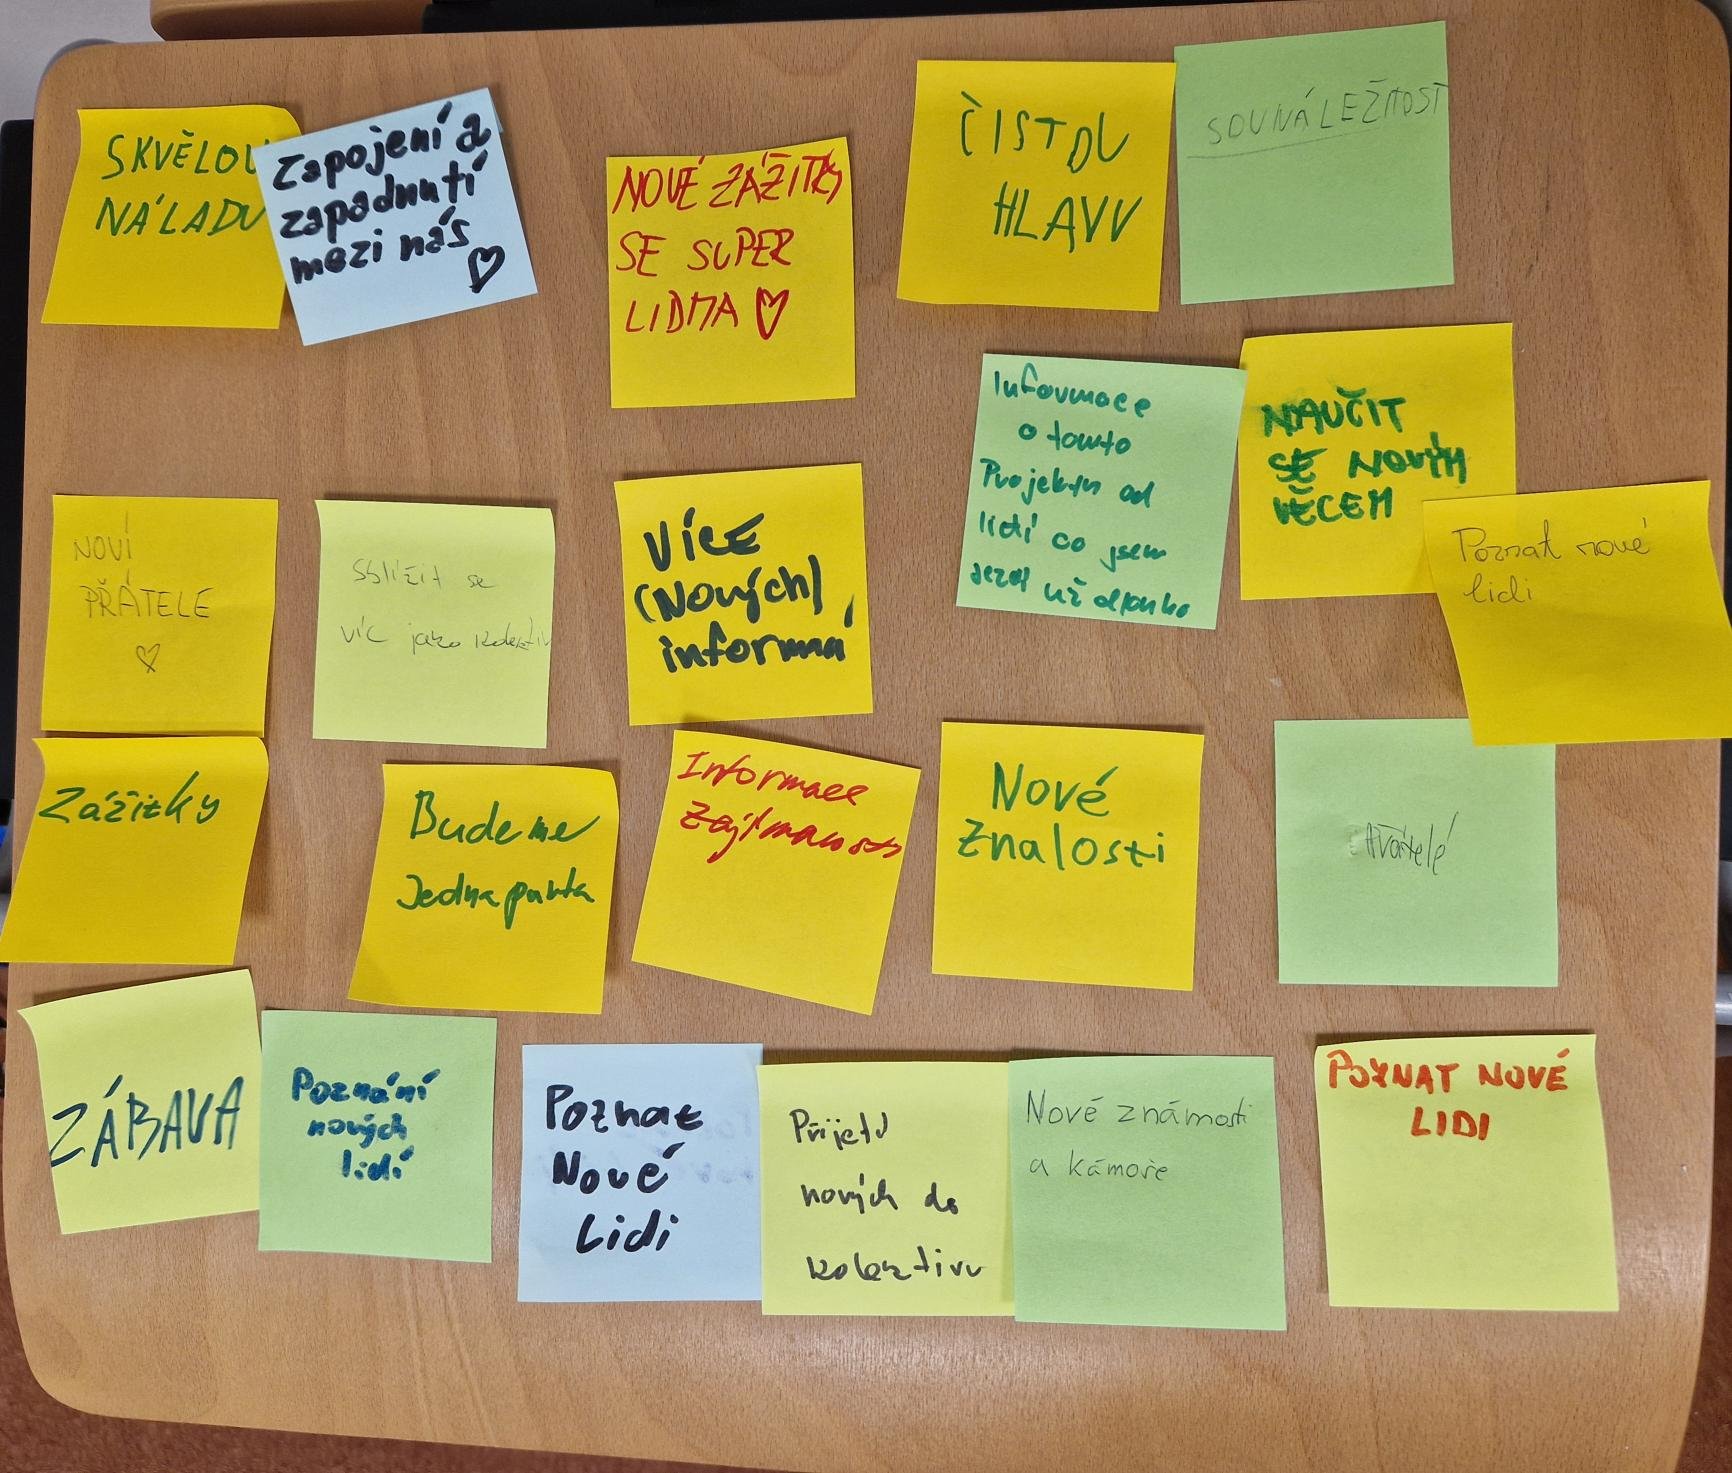 SKVĚLOU
NÁLADU
Zapojení a
zapadnutí
mezi nás
NOVÉ ZÁŽITKY
SE SUPER
LIDMA
ČISTOU
HLAVU
SOUNÁLEŽITOST
Informace
o tomto
Projektu od
lidí co jsem
už dlouho
NAUČIT
SE NOVÝM
VĚCEM
Poznat nové
lidi
NOVÍ
PŘÁTELÉ
Sblížit se
víc jako kolektiv
VÍCE
(NOVÝCH)
informa
Zážitky
Budeme
Jedna parta
Informace
Zajímavosti
Nové
Znalosti
Přátelé
ZÁBAVA
Poznání
nových
lidí
Poznat
Nové
Lidi
Přijetí
nových do
kolektivu
Nové známosti
a kámoše
POZNAT NOVÉ
LIDI